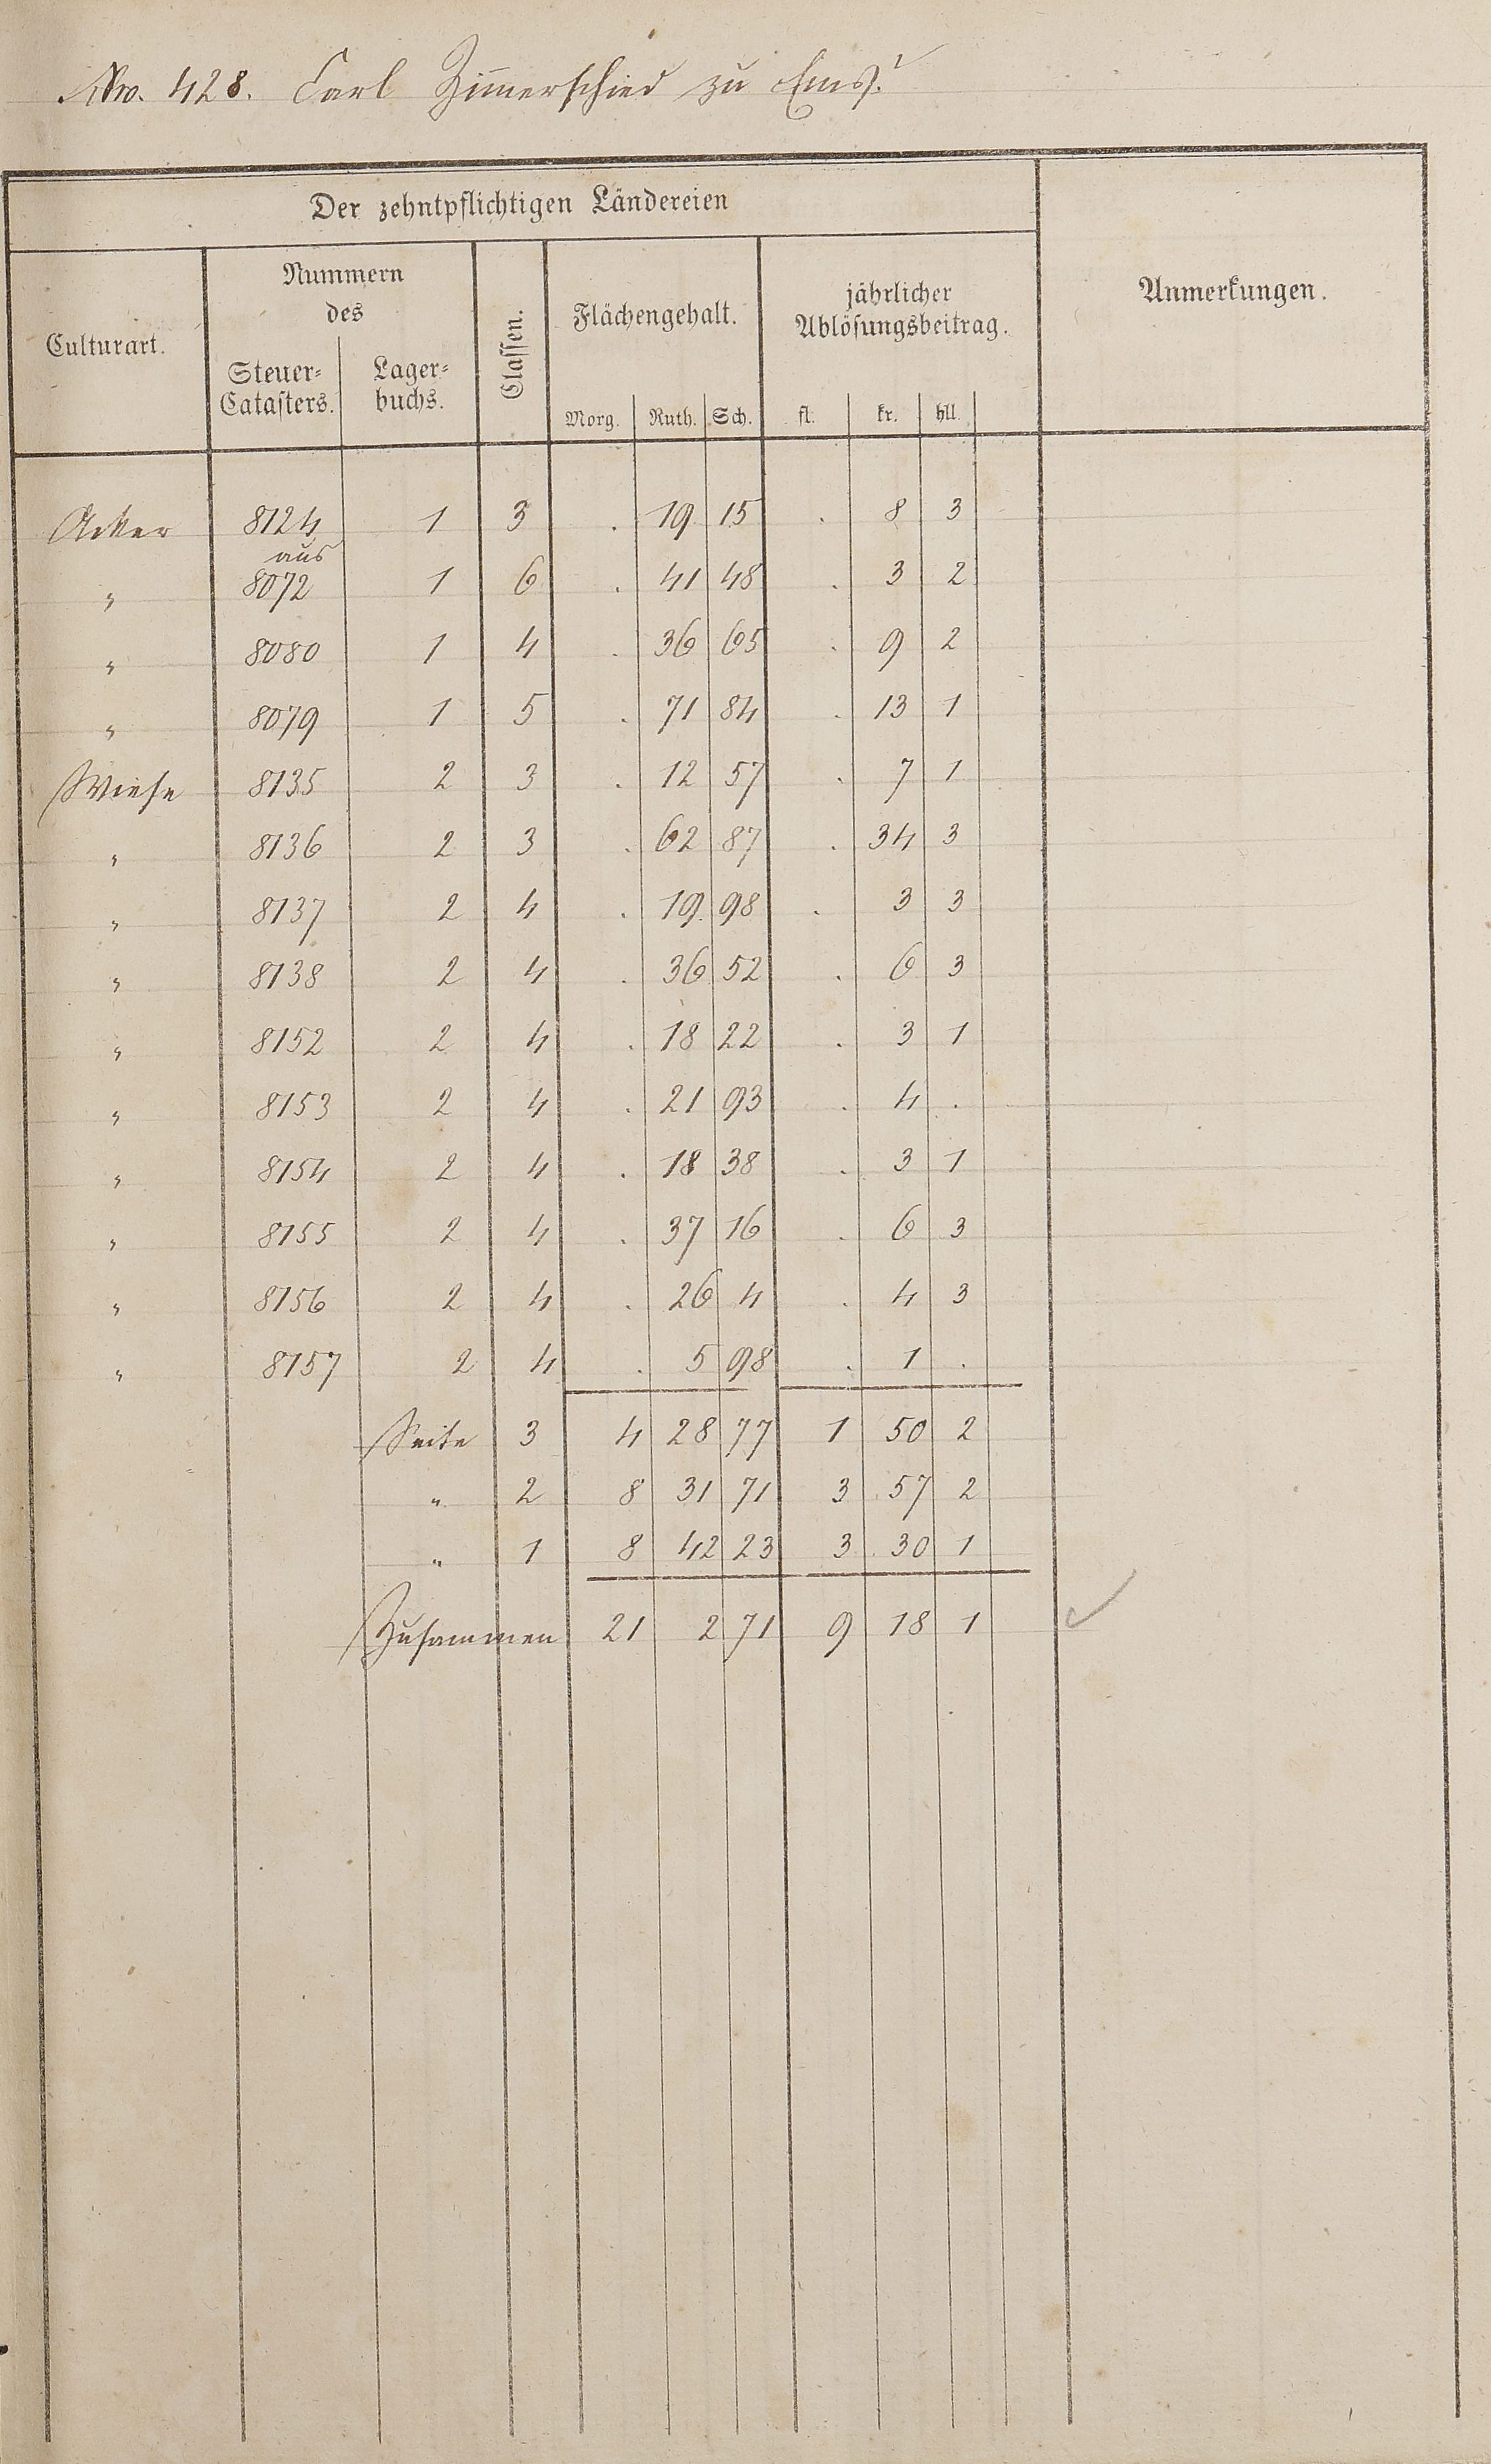 Nro. 428. Carl Zimerschied zu Ems.
Der zehntpflichtigen Ländereien
Culturart. Nummern des Steuer-Catasters. Lager-buchs. Classen. Flächengehalt. Morg. Ruth. Sch. jährlicher Ablösungsbeitrag. fl. kr. hll. Anmerkungen.
Acker 8124 1 3 . 19 15 . 8 3
aus
" 8072 1 6 . 41 48 . 3 2
" 8080 1 4 . 36 65 . 9 2
" 8079 1 5 . 71 84 . 13 1
Wiese 8135 2 3 . 12 57 . 7 1
" 8136 2 3 . 62 87 . 34 3
" 8137 2 4 . 19 98 . 3 3
" 8138 2 4 . 36 52 . 6 3
" 8152 2 4 . 18 22 . 3 1
" 8153 2 4 . 21 93 . 4 .
" 8154 2 4 . 18 38 . 3 1
" 8155 2 4 . 37 16 . 6 3
" 8156 2 4 . 26 4 . 4 3
" 8157 2 4 . 5 98 . 1 .
Seite 3 4 28 77 1 50 2
" 2 8 31 71 3 57 2
" 1 8 42 23 3 30 1
Zusammen 21 2 71 9 18 1